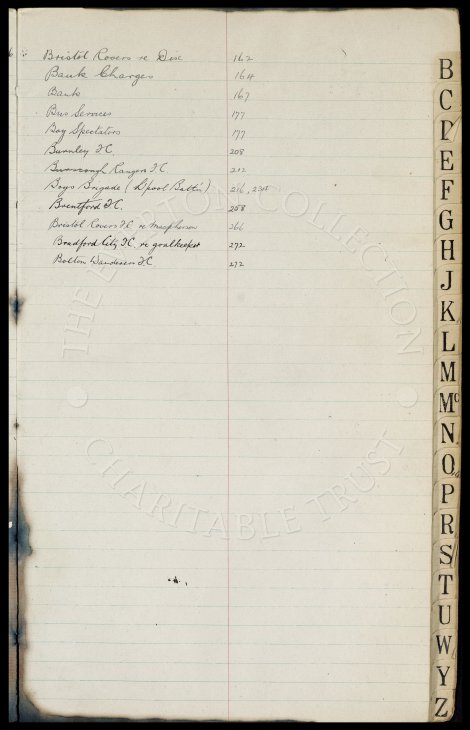 Bristol Rovers re Dix 162
Bank Charges 164
Bank 167
Bus Services 177
Boy Spectators 177
Burnley F.C. 208
Burscough Rangers F.C. 212
Boys Brigade (L'pool Battn) 216, 234
Brentford F.C. 258
Bristol Rovers F.C. re Macpherson 266
Bradford City F.C. re goalkeeper 272
Bolton Wanderers F.C. 272
B
C
D
E
F
G
H
J
K
L
M
Mc
N
O
P
R
S
T
U
W
Y
Z
THE EVERTON COLLECTION
CHARITABLE TRUST